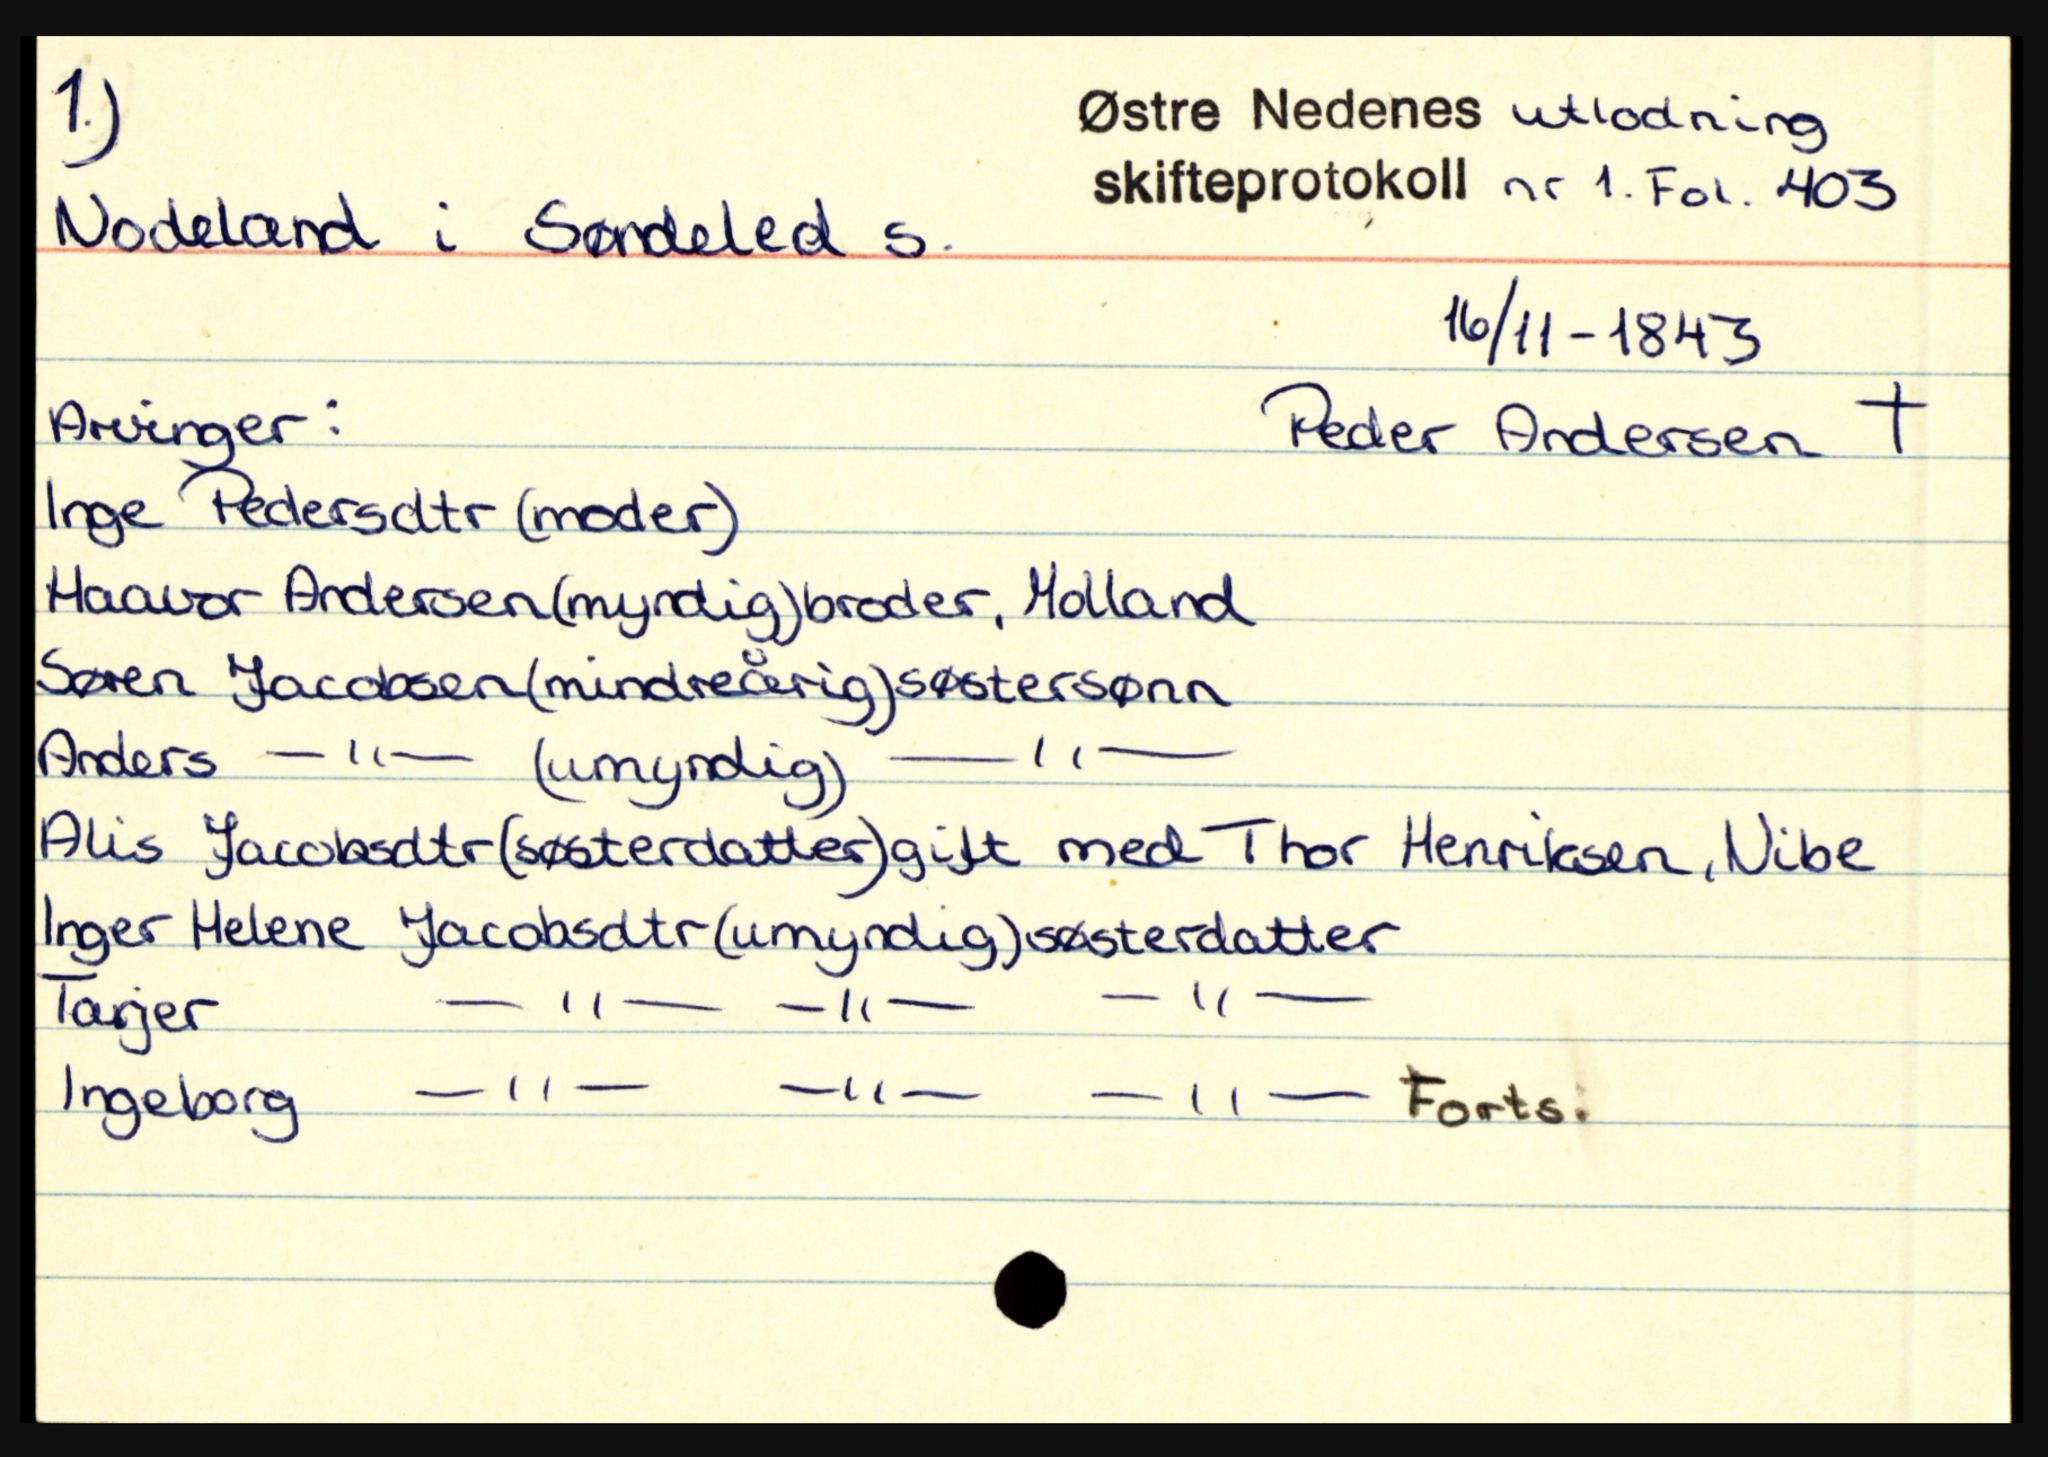 1.)
Østre Nedenes utlodning
skifteprotokoll nr 1. Fol. 403
Nodeland i Søndeled s.
16/11-1843
Arvinger:
Peder Andersen †
Inge Pedersdtr (moder)
Haavor Andersen (myndig) broder, Holland
Søren Jacobsen (mindreårig) søstersønn
Anders —"— (umyndig) —"—
Alis Jacobsdtr (søsterdatter) gift med Thor Henriksen, Nibe
Inger Helene Jacobsdtr (umyndig) søsterdatter
Tarjer —"— —"— —"—
Ingeborg —"— —"— —"— Forts.